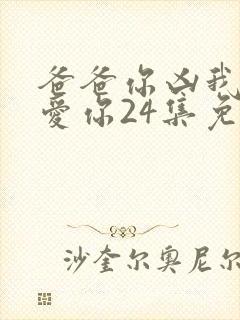 爸爸你凶我
爱你24集免
沙奎尔奥尼尔